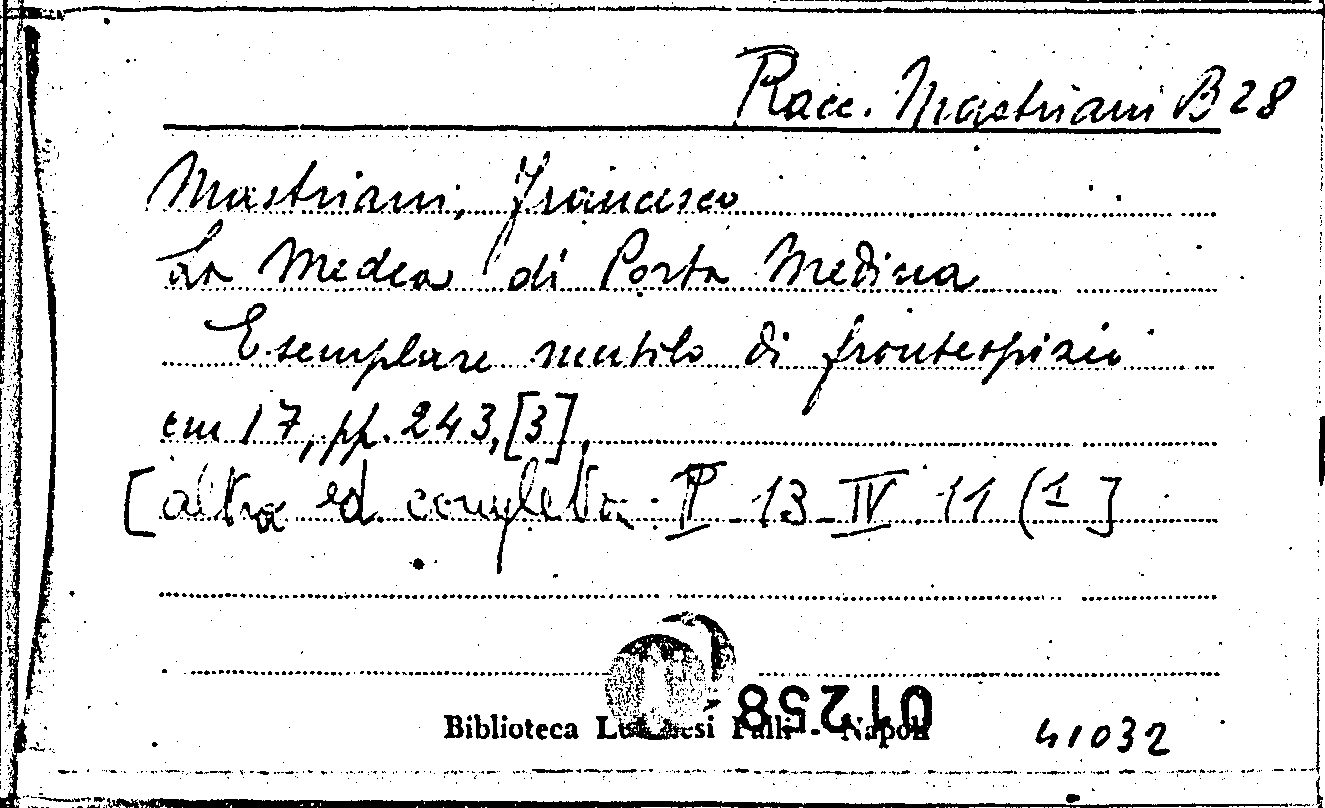 Racc. Mastriani B 28
Mastriani, Francesco
La Medea di Porta Medina
Esemplare mutilo di frontespizio
cm 17, pp. 243, [3],
[altra ed. completa: P 13 IV 11 (1]
01258
Biblioteca Lucchesi Palli - Napoli
41032